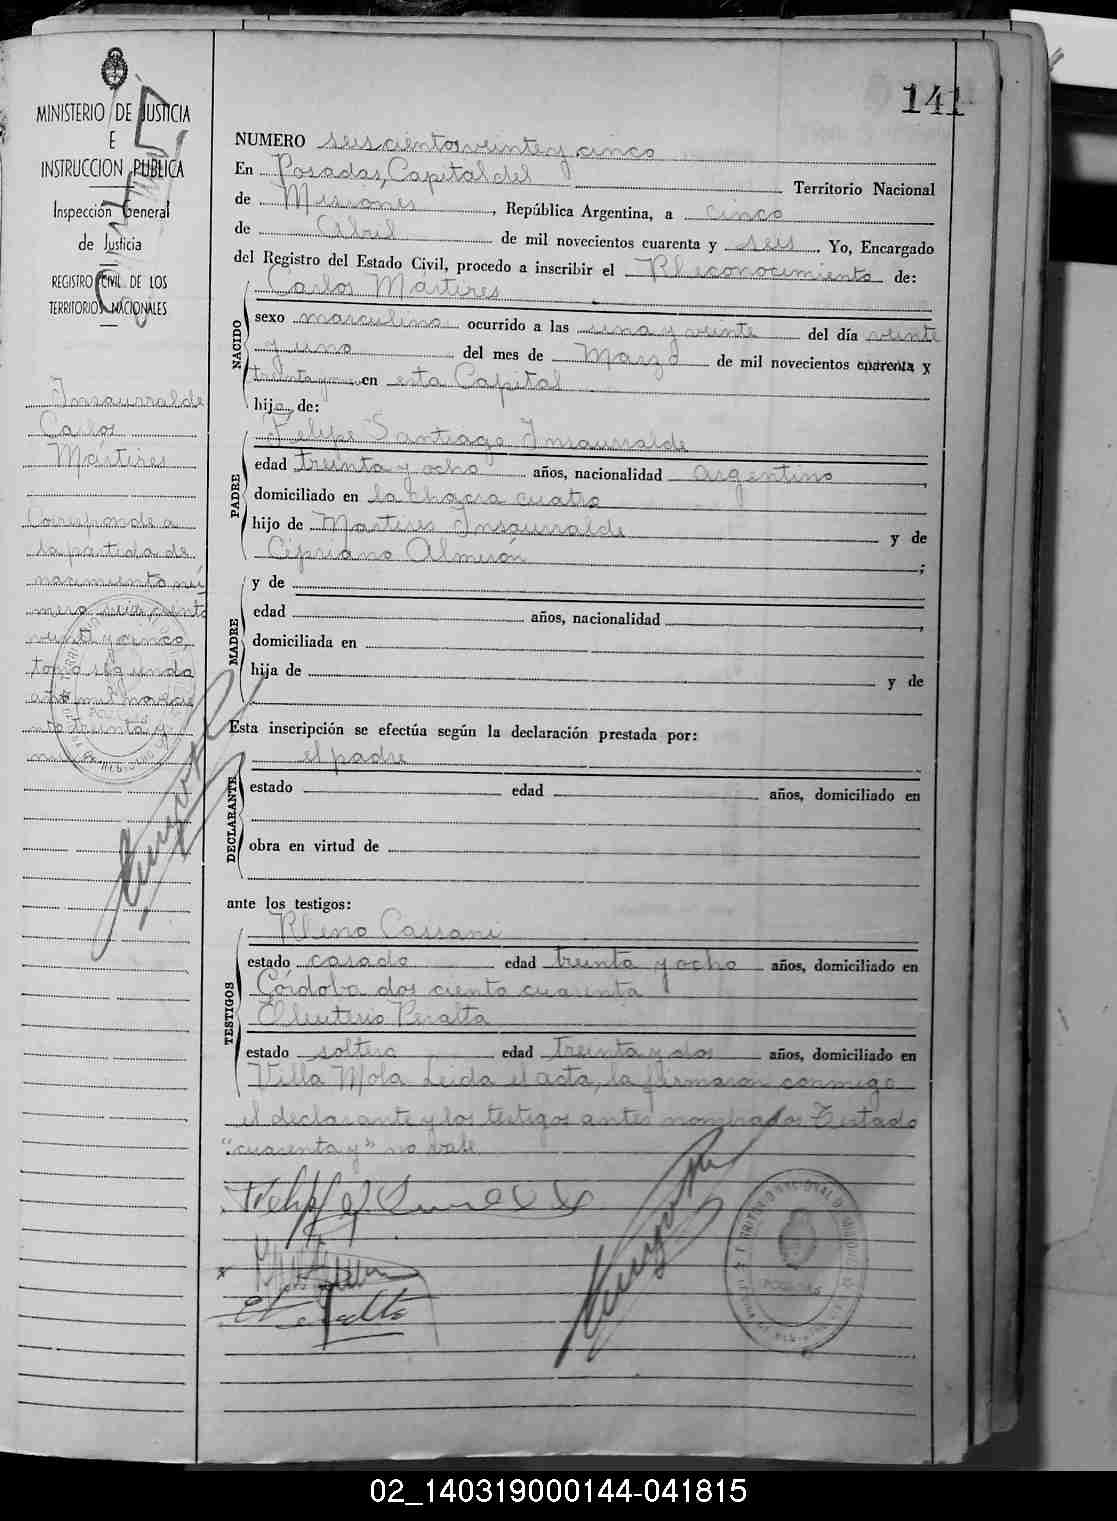 141
MINISTERIO DE JUSTICIA
E
INSTRUCCION PUBLICA
Inspección General
de Justicia
REGISTRO CIVIL DE LOS
TERRITORIOS NACIONALES
Insaurralde
Carlos
Martires
Corresponde a
la partida de
nacimiento nú
mero seis ciento
veinte y cinco,
tomo segundo
año mil novecie
nto treinta y
NUMERO seis cientos veinte y cinco
En Posadas, Capital del Territorio Nacional
de Misiones, República Argentina, a cinco
de Abril de mil novecientos cuarenta y seis. Yo, Encargado
del Registro del Estado Civil, procedo a inscribir el Rheconocimiento de:
NACIDO
Carlos Martires
sexo masculino ocurrido a las una y veinte del día veinte
y uno del mes de Marzo de mil novecientos cuarenta y
treinta y en esta Capital
hijo, de:
PADRE
Felipe Santiago Insaurralde
edad treinta y ocho años, nacionalidad argentino,
domiciliado en la chacra cuatro
hijo de Martires Insaurralde y de
Cipriana Almirón;
MADRE
y de
edad años, nacionalidad,
domiciliada en
hija de y de
Esta inscripción se efectúa según la declaración prestada por:
el padre
DECLARANTE
estado edad años, domiciliado en
obra en virtud de
ante los testigos:
TESTIGOS
Rheno Cassani
estado casado edad treinta y ocho años, domiciliado en
Córdoba dos ciento cuarenta
Eleuterio Peralta
estado soltero edad treinta y dos años, domiciliado en
Villa Mola Leida el acta, la firmaron conmigo
el declarante y los testigos antes nombrados Testado
"cuarenta y" no vale
POSADAS
02_140319000144-041815